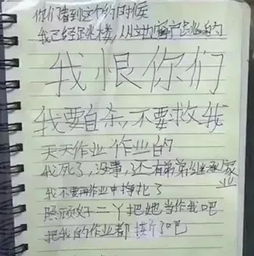 你们看到这个的时候
我已经跳楼，从
我恨你们
我要自杀，不要救我
天天作业作业的
我死了，没事，还有弟弟继承家业
我不要再作业中挣扎了
照顾好二丫把她当作我吧
把我的作业都撕了吧